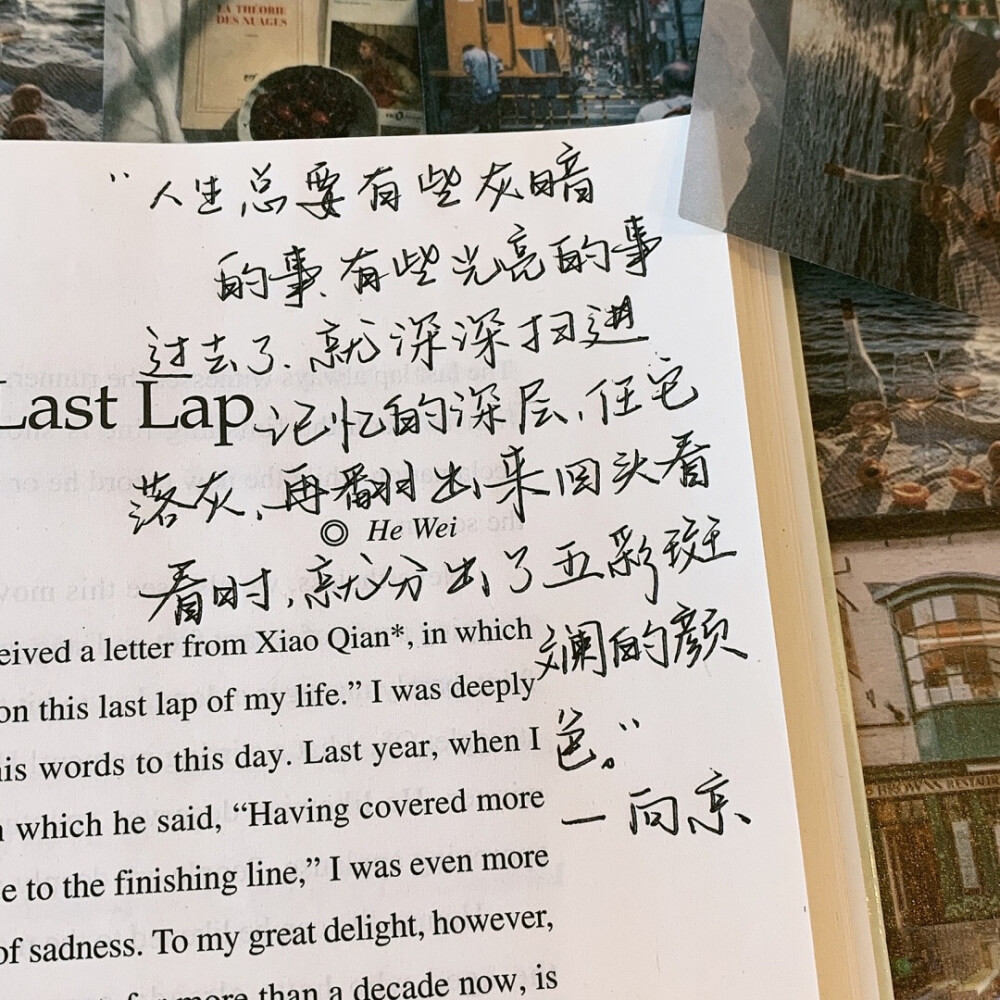 LA THÉORIE
DES NUAGES
“人生总要有些灰暗
的事、有些光亮的事
过去了、就深深扫进
Last Lap
记忆的深层,任它
落灰,再翻出来回头看
He Wei
看时,就分出了五彩斑
斓的颜
色。”
—向京
eived a letter from Xiao Qian*, in which
on this last lap of my life.” I was deeply
is words to this day. Last year, when I
which he said, “Having covered more
e to the finishing line,” I was even more
of sadness. To my great delight, however,
more than a decade now, is